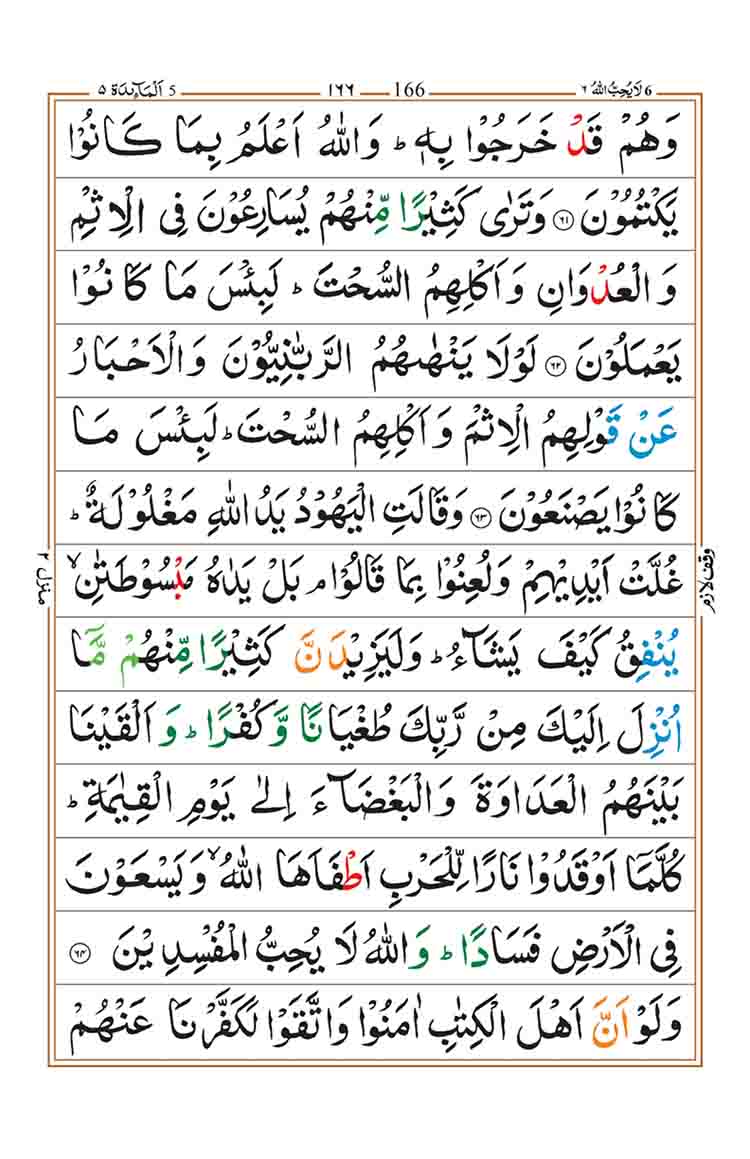 لَا يُحِبُّ اللّٰهُ ٦ 6 166 ١٦٦ اَلْمَآئِدَة ٥ 5
وَهُمْ قَدْ خَرَجُوْا بِهٖ ؕ وَاللّٰهُ اَعْلَمُ بِمَا كَانُوْا
يَكْتُمُوْنَ ﴿٦١﴾ وَتَرٰى كَثِيْرًا مِّنْهُمْ يُسَارِعُوْنَ فِى الْاِثْمِ
وَالْعُدْوَانِ وَاَكْلِهِمُ السُّحْتَ ؕ لَبِئْسَ مَا كَانُوْا
يَعْمَلُوْنَ ﴿٦٢﴾ لَوْلَا يَنْهٰىهُمُ الرَّبّٰنِيُّوْنَ وَالْاَحْبَارُ
عَنْ قَوْلِهِمُ الْاِثْمَ وَاَكْلِهِمُ السُّحْتَ ؕ لَبِئْسَ مَا
كَانُوْا يَصْنَعُوْنَ ﴿٦٣﴾ وَقَالَتِ الْيَهُوْدُ يَدُ اللّٰهِ مَغْلُوْلَةٌ ؕ
غُلَّتْ اَيْدِيْهِمْ وَلُعِنُوْا بِمَا قَالُوْا ۘ بَلْ يَدٰهُ مَبْسُوْطَتٰنِ ۙ
يُنْفِقُ كَيْفَ يَشَآءُ ؕ وَلَيَزِيْدَنَّ كَثِيْرًا مِّنْهُمْ مَّاۤ
اُنْزِلَ اِلَيْكَ مِنْ رَّبِّكَ طُغْيَانًا وَّكُفْرًا ؕ وَاَلْقَيْنَا
بَيْنَهُمُ الْعَدَاوَةَ وَالْبَغْضَآءَ اِلٰى يَوْمِ الْقِيٰمَةِ ؕ
كُلَّمَاۤ اَوْقَدُوْا نَارًا لِّلْحَرْبِ اَطْفَاَهَا اللّٰهُ ۙ وَيَسْعَوْنَ
فِى الْاَرْضِ فَسَادًا ؕ وَاللّٰهُ لَا يُحِبُّ الْمُفْسِدِيْنَ ﴿٦٤﴾
وَلَوْ اَنَّ اَهْلَ الْكِتٰبِ اٰمَنُوْا وَاتَّقَوْا لَكَفَّرْنَا عَنْهُمْ
وقف لازم
منزل ٢